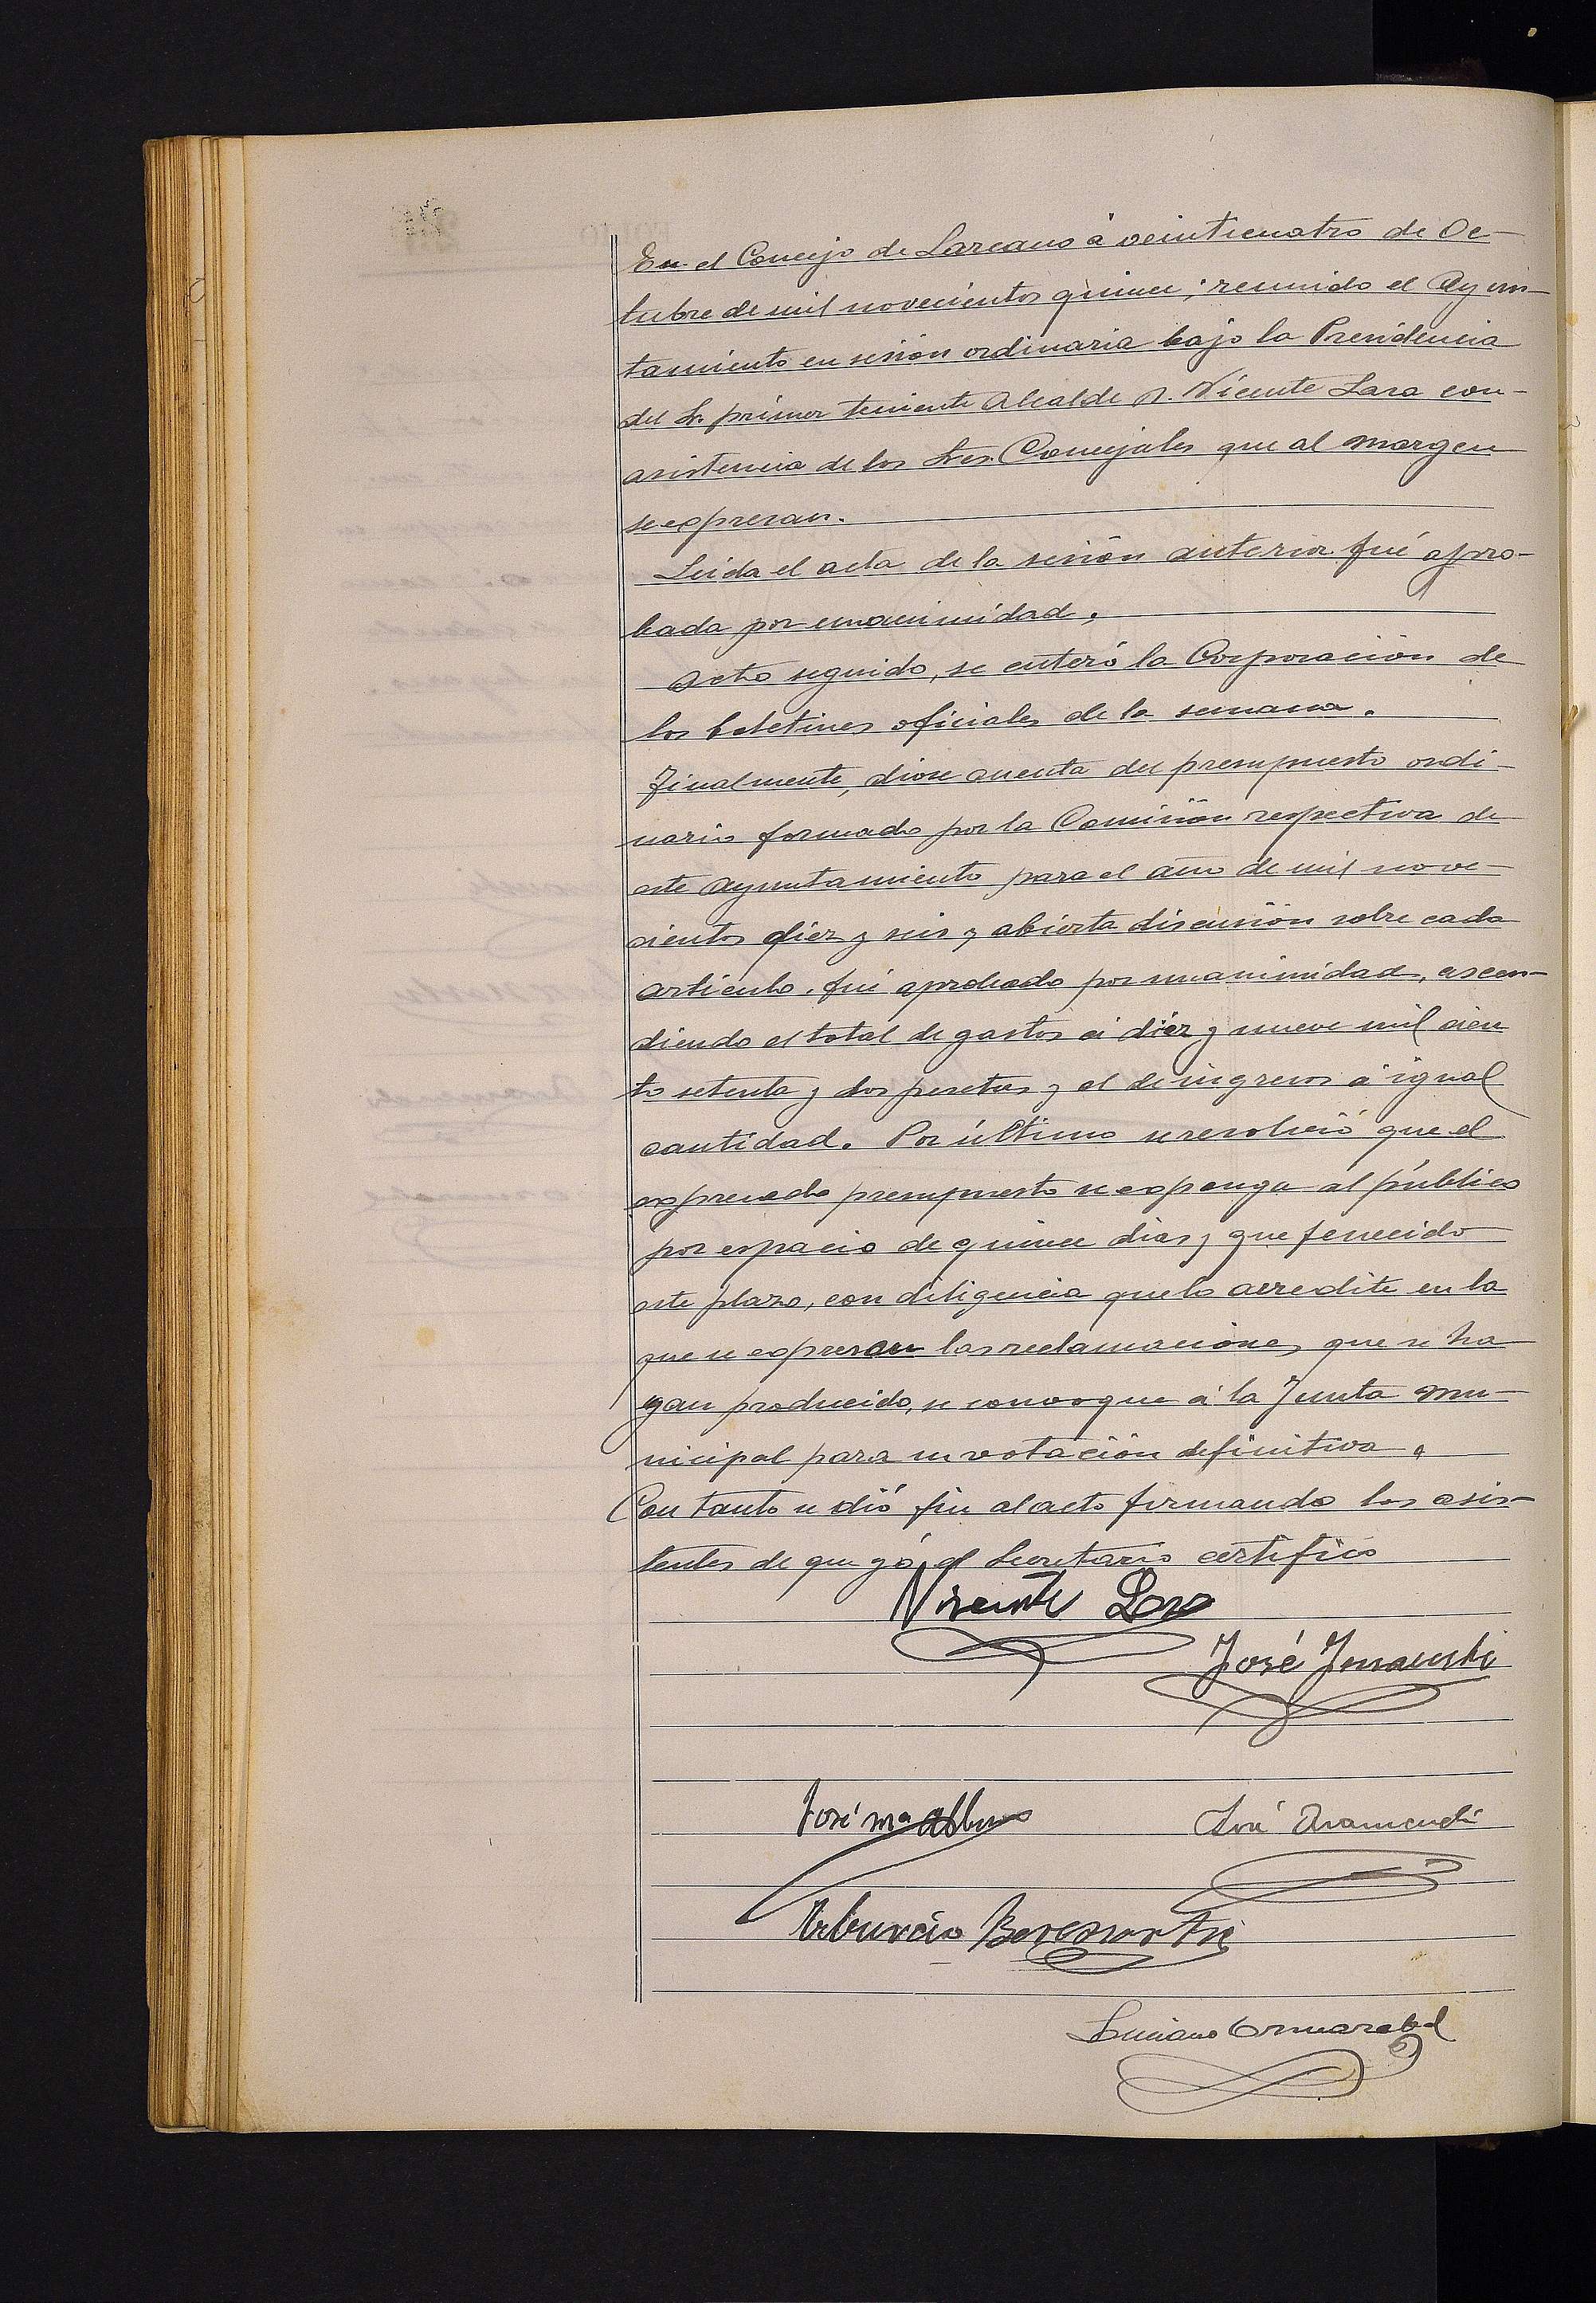 En el Concejo de Lazcano á veinticuatro de Oc-
tubre de mil novecientos quince; reunido el Ayun-
tamiento en sesión ordinaria bajo la Presidencia
del Sr. primer teniente Alcalde D. Vicente Lasa con-
asistencia de los Sres. Concejales que al margen
se expresan.
Leida el acta de la sesión anterior fué apro-
bada por unanimidad.
Acto seguido, se enteró la Corporación de
los boletines oficiales de la semana.
Finalmente, diose cuenta del presupuesto ordi-
nario formado por la Comisión respectiva de
este Ayuntamiento para el año de mil nove-
cientos diez y seis y abierta discusión sobre cada
articulo, fué aprobado por unanimidad, ascen-
diendo el total de gastos á diez y nueve mil cien
to setenta y dos pesetas y el de ingresos á igual
cantidad. Por último se resolvió que el
expresado presupuesto se exponga al público
por espacio de quince dias y que fenecido
este plazo, con diligencia que lo acredite en la
que se expresen las reclamaciones que se ha
yan producido, se convoque á la Junta mu-
nicipal para su votación definitiva.
Con tanto se dió fin al acto firmando los asis-
tentes de que yó el Secretario certifico
Vicente Lasa
José
José Mª José Aramendi
Luciano Ormazabal